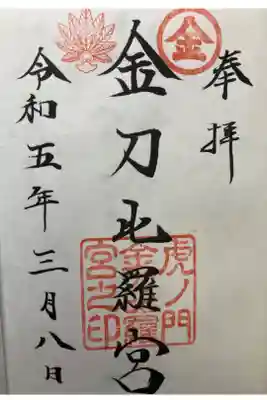 奉拝
金
金刀比羅宮
虎ノ門
金
宮之印
令和五年三月八日